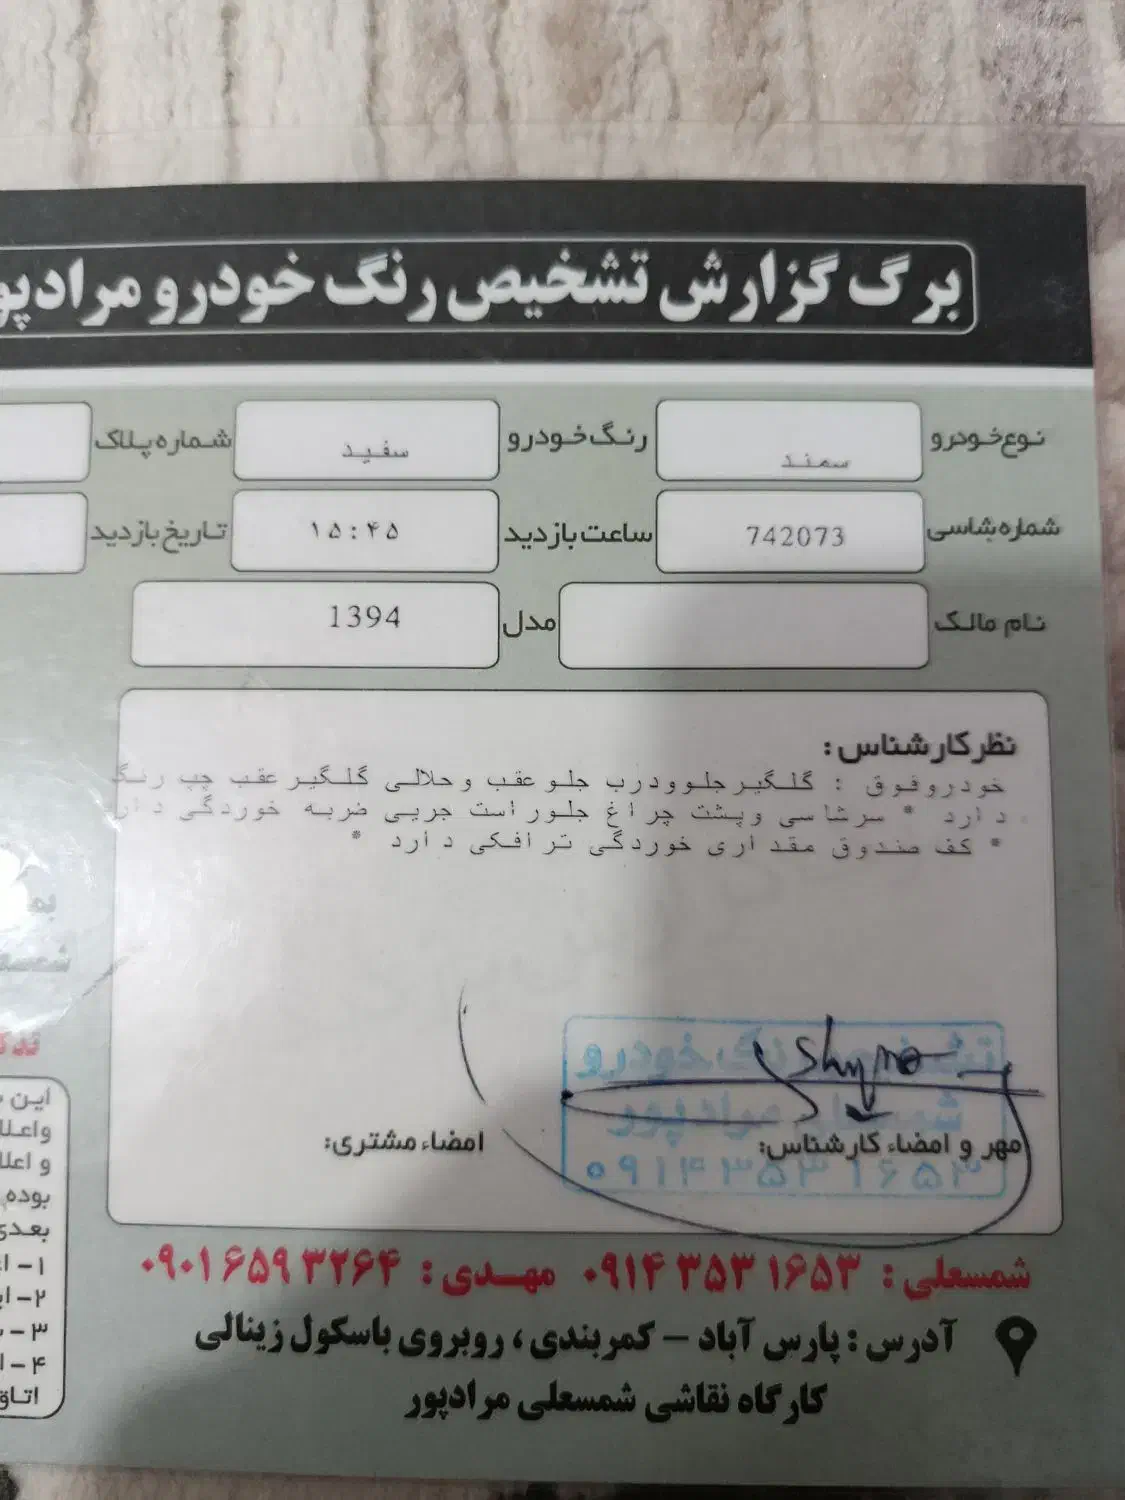 برگ گزارش تشخیص رنگ خودرو مرادپو
نوع خودرو سمند رنگ خودرو سفید شماره پلاک
شماره شاسی 742073 ساعت بازدید ۱۵:۴۵ تاریخ بازدید
نام مالک مدل 1394
نظر کارشناس:
خودروفوق : گلگیرجلوودرب جلوعقب وحلالی گلگیرعقب چپ رنگ
دارد * سرشاسی وپشت چراغ جلوراست جریی ضربه خوردگی دار
* کف صندوق مقداری خوردگی ترافکی دارد *
تشخیص رنگ خودرو
شمسعلی مرادپور
۰۹۱۴۳۵۳۱۶۵۳
مهر و امضاء کارشناس: امضاء مشتری:
شمسعلی : ۰۹۱۴ ۳۵۳ ۱۶۵۳ مهدی : ۰۹۰۱ ۶۵۹ ۳۲۶۴
آدرس : پارس آباد – کمربندی ، روبروی باسکول زینالی
کارگاه نقاشی شمسعلی مرادپور
این
واعلا
و اعلا
بوده
بعدی
۱- ا
۲- ای
۳-
۴- ا
اتاق